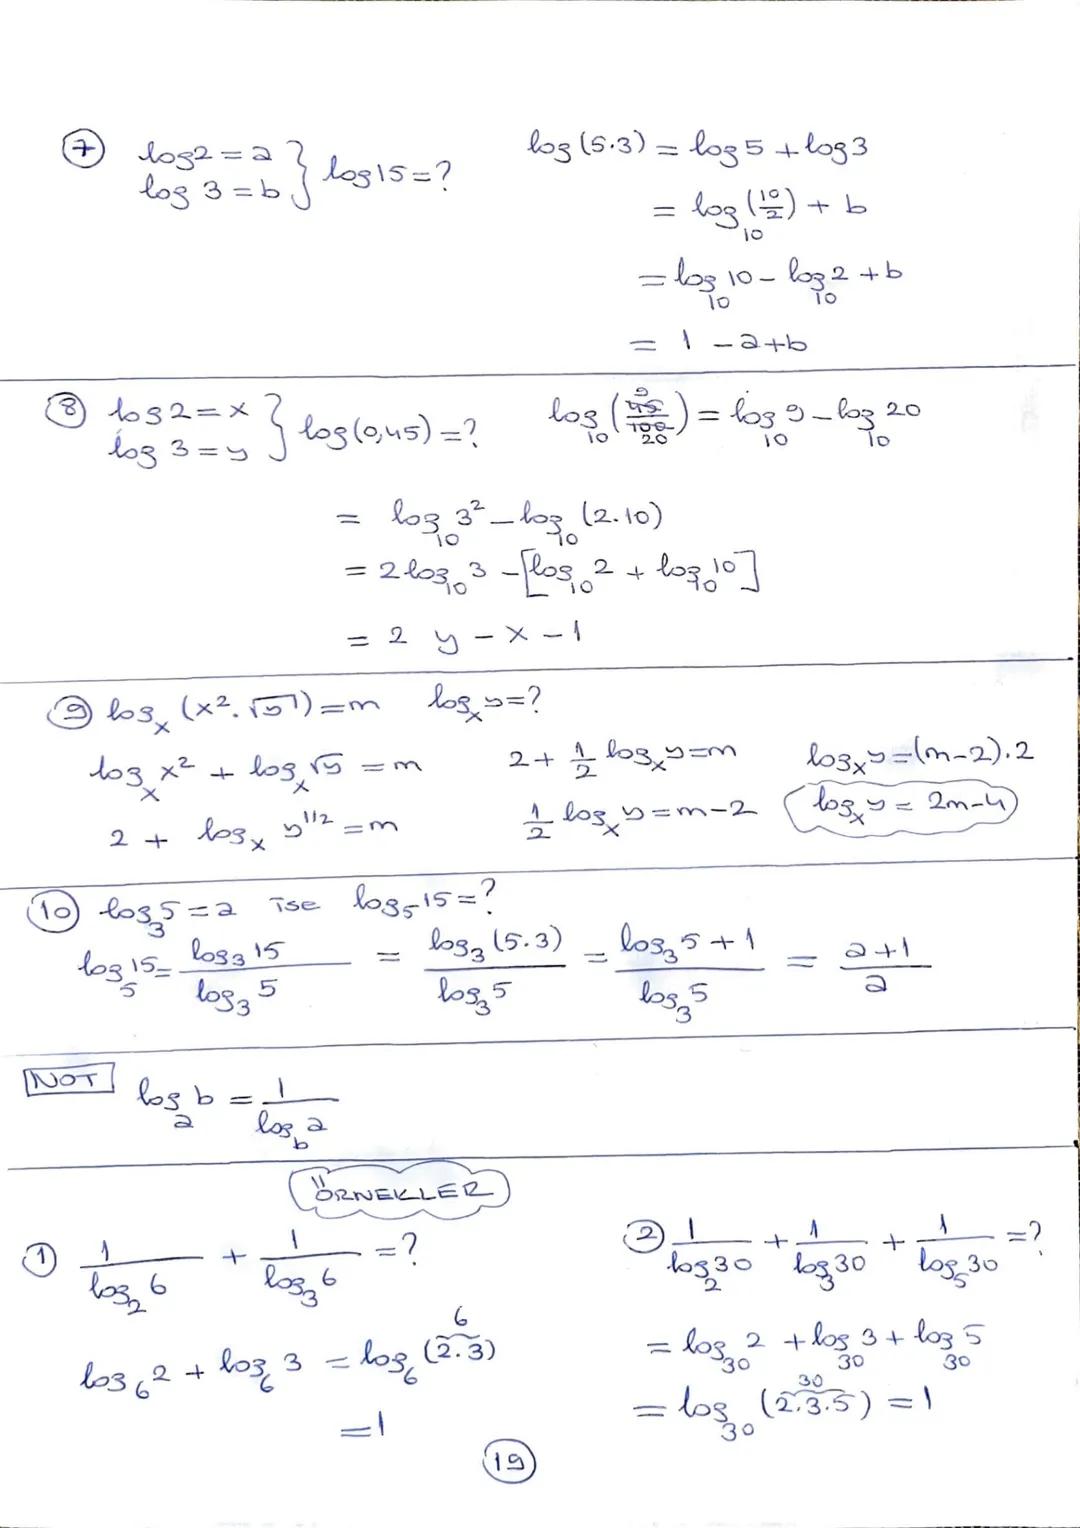 7 log2 = a } log15 = ?
log 3 = b
log (5.3) = log 5 + log 3
= log₁₀ (10/2) + b
= log₁₀ 10 - log₁₀ 2 + b
= 1 - a + b
8 log 2 = x } log (0,45) = ?
log 3 = y
log₁₀ (45/100) = log₁₀ 9 - log₁₀ 20
9
20
= log₁₀ 3² - log₁₀ (2.10)
= 2 log₁₀ 3 - [log₁₀ 2 + log₁₀ 10]
= 2 y - x - 1
9 logₓ (x². √y) = m logₓ y = ?
logₓ x² + logₓ √y = m
2 + logₓ y^1/2 = m
2 + 1/2 logₓ y = m
1/2 logₓ y = m - 2
logₓ y = (m - 2).2
logₓ y = 2m - 4
10 log₃ 5 = a ise log₅ 15 = ?
log₅ 15 = log₃ 15 / log₃ 5 = log₃ (5.3) / log₃ 5 = log₃ 5 + 1 / log₃ 5 = a + 1 / a
NOT
logₐ b = 1 / log_b a
ÖRNEKLER
1 1 / log₂ 6 + 1 / log₃ 6 = ?
log₆ 2 + log₆ 3 = log₆ (2.3)
6
= 1
2 1 / log₂ 30 + 1 / log₃ 30 + 1 / log₅ 30 = ?
= log₃₀ 2 + log₃₀ 3 + log₃₀ 5
30
= log₃₀ (2.3.5) = 1
19